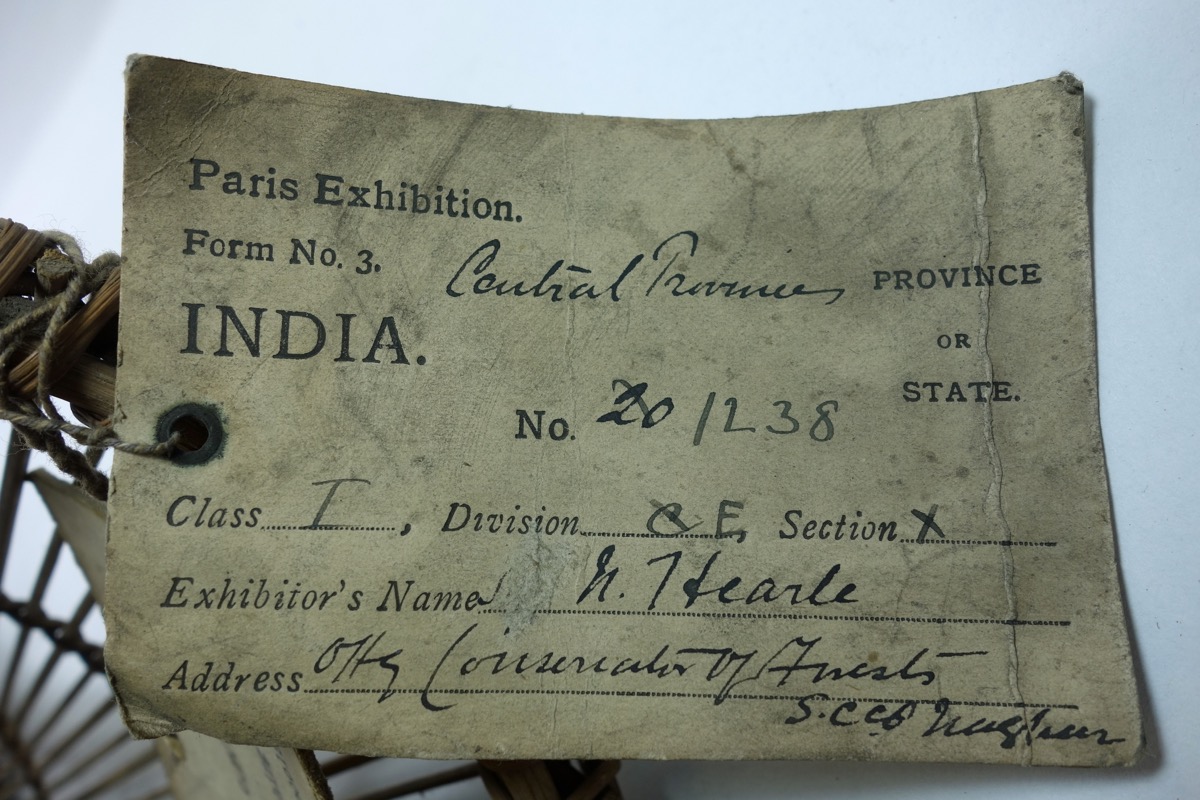 Paris Exhibition.
Form No. 3.
Central Provinces PROVINCE
INDIA.
OR
STATE.
No. 20/1238
Class I, Division C E, Section X
Exhibitor's Name N. Hearle
Address Offg Conservator of Forests
S. C Nagpur